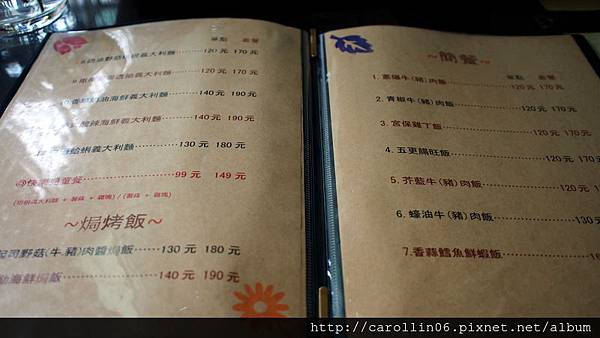 單點 套餐
野菇 義大利麵 120元 170元
義大利麵 120元 170元
海鮮義大利麵 140元 190元
辣海鮮義大利麵 140元 190元
蛤蜊義大利麵 130元 180元
快樂兒童餐 99元 149元
義大利麵 + 薯條 + 雞塊) / (薯條 + 雞塊)
~焗烤飯~
起司野菇(牛.豬)肉醬焗飯 130元 180元
海鮮焗飯 140元 190元
~簡餐~
單點 套餐
1. 蔥爆牛(豬)肉飯 120元 170元
2. 青椒牛(豬)肉飯 120元 170元
3. 宮保雞丁飯 120元 170元
4. 五更腸旺飯 120元 170元
5. 芥藍牛(豬)肉飯 120元
6. 蠔油牛(豬)肉飯 130元
7. 香蒜鱈魚鮮蝦飯
http://carollin06.pixnet.net/album